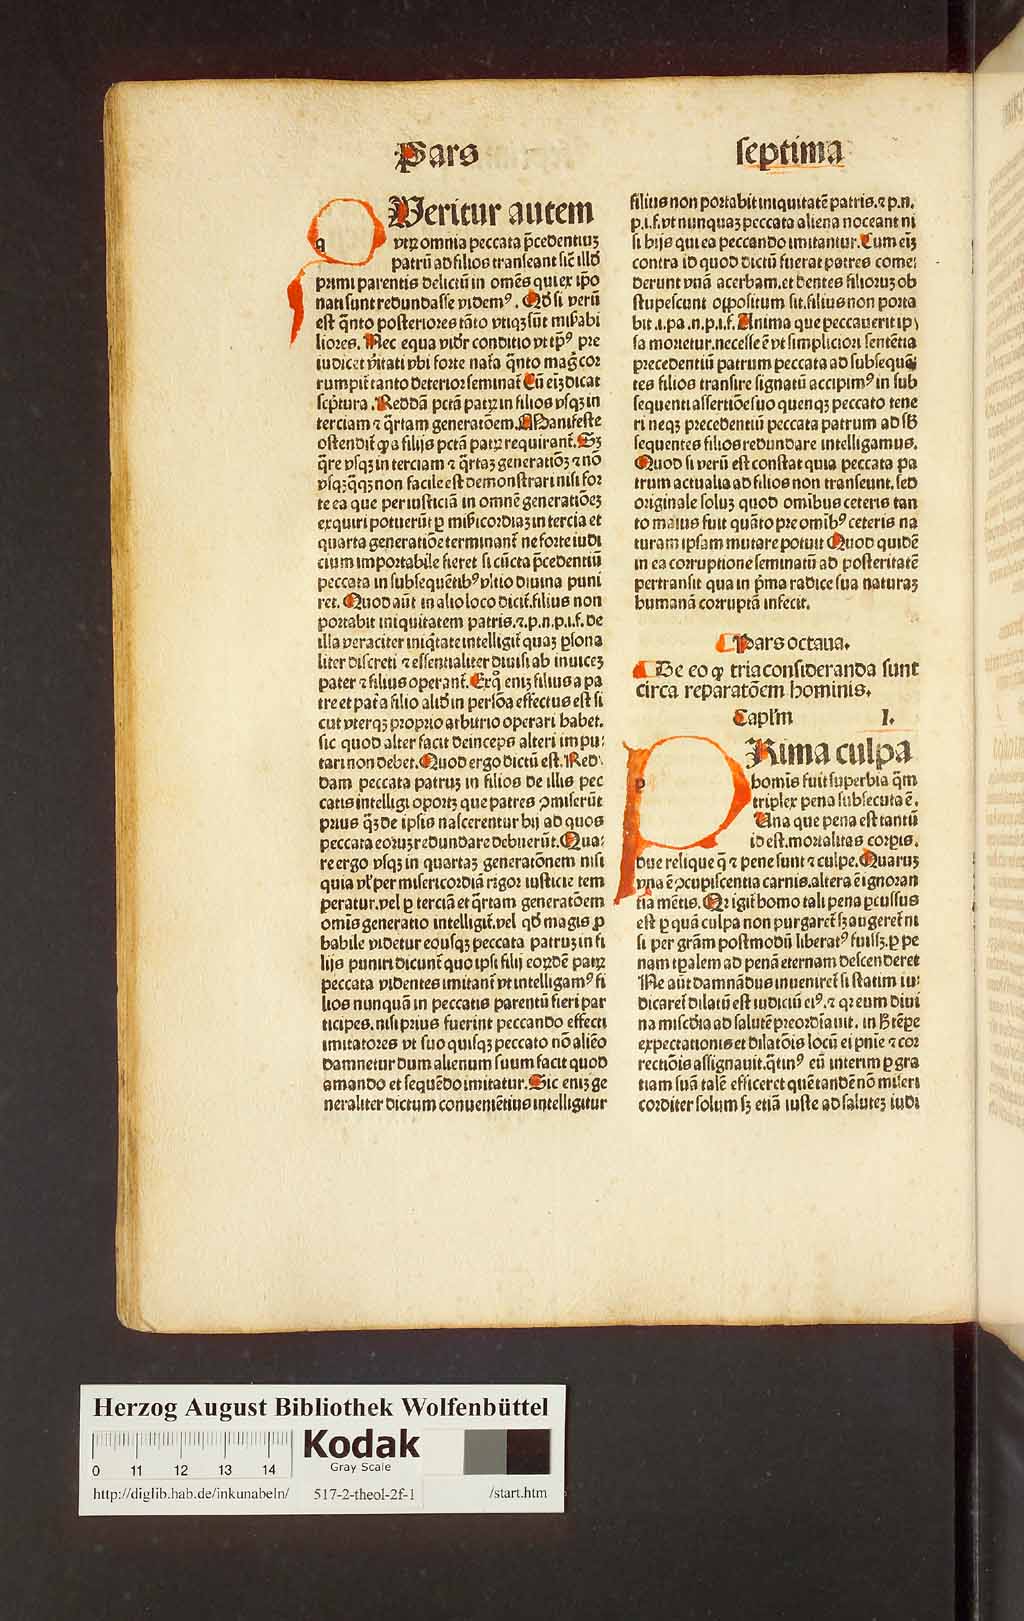 Pars septima
QUeritur autem
vtrꝫ omnia peccata p̄cedentiuꝫ
patrū ad filios transeant sic̄ illd̄
primi parentis delictū in omēs qui ex ip̄o
nati sunt redundasse videmꝰ. Qd̓ si verū
est q̄nto posteriores tāto vtiqꝫ sūt mis̄abi
liores. Nec equa vid̓r conditio vt tp̄ꝰ pre
iudicet v̓itati vbi forte nat̄a q̄nto mag̓ cor
rumpit̄ tanto deterior seminat̄ Cū eīꝫ dicat
scptura. Reddā pctā patrꝫ in filios vsqꝫ in
terciam ⁊ q̄rtam generatōem. Manifeste
ostendit̄ ꝙ a filijs pctā patrꝫ requirant̄. Sꝫ
q̄re vsqꝫ in terciam ⁊ q̄rtaꝫ generatiōꝫ ⁊ nō
vsqꝫqꝫ non facile est demonstrari nisi for
te ea que per iusticiā in omnē generatiōeꝫ
exquiri potuerūt ꝑ mis̄icordiaꝫ in tercia et
quarta generatiōe terminant̄ ne forte iudi
cium importabile fieret si cūcta p̄cedentiū
peccata in subsequētibꝰ vltio diuina puni
ret. Quod aūt in alio loco dicit̄. filius non
portabit iniquitatem patris. ⁊. p. n. p. i. f. de
illa veraciter iniq̄tate intelligit̄ quaꝫ ꝑsona
liter discreti ⁊ essentialiter diuisi ab inuiceꝫ
pater ⁊ filius operant̄. Exq̄ eniꝫ filius a pa
tre et pat̄ a filio aliō in persōa effectus est si
cut vterqꝫ proprio arbitrio operari habet.
sic quod alter facit deinceps alteri impu⸗
tari non debet. Quod ergo dictū est. Red⸗
dam peccata patruꝫ in filios de illis pec
catis intelligi oportꝫ que patres ꝯmiserūt
prius q̄ꝫ de ipsis nascerentur hij ad quos
peccata eoruꝫ redundare debuerūt. Qua⸗
re ergo vsqꝫ in quartaꝫ generatōnem nisi
quia vl̓ per misericordiā rigor iusticie tem
peratur. vel ꝑ terciā et q̄rtam generatōem
omīs generatio intelligit̄. vel qd̓ magis ꝓ
babile videtur eousqꝫ peccata patruꝫ in fi
lijs puniri dicunt̄ quo ipsi filij eorūdē patrꝫ
peccata videntes imitant̄ vt intelligamꝰ fi
lios nunquā in peccatis parentū fieri par
ticipes. nisi prius fuerint peccando effecti
imitatores vt suo quisqꝫ peccato nō aliēo
damnetur dum alienum suum facit quod
amando et sequēdo imitatur. Sic eniꝫ ge
neraliter dictum conueniētius intelligitur
filius non portabit iniquitatē patris. ⁊ p. n.
p. i. f. vt nunquaꝫ peccata aliena noceant ni
si hijs qui ea peccando imitantur. Cum eiꝫ
contra id quod dictū fuerat patres come⸗
derunt vuā acerbam. et dentes filioruꝫ ob
stupescunt oppositum sit. filius non porta
bit. i. pa. n. p. i. f. Anima que peccauerit ip⸗
sa morietur. necesse ē vt simpliciori sentētia
precedentiū patrum peccata ad subsequē⸗
tes filios transire signatū accipimꝰ in sub
sequenti assertiōe suo quenqꝫ peccato tene
ri neqꝫ precedentiū peccata patrum ad sb̄
sequentes filios redundare intelligamus.
Quod si verū est constat quia peccata pa
trum actualia ad filios non transeunt. sed
originale soluꝫ quod omībus ceteris tan
to maius fuit quāto pre omībꝰ ceteris na
turam ipsam mutare potuit Quod quidē
in ea corruptione seminatū ad posteritatē
pertransit qua in p̄ma radice sua naturaꝫ
humanā corruptā infecit.
Pars octaua.
De eo ꝙ tria consideranda sunt
circa reparatōem hominis.
Capl̓m I.
PRima culpa
homīs fuit superbia q̄m
triplex pena subsecuta ē.
Una que pena est tantū
id est. mortalitas corpis.
Due relique q̄ ⁊ pene sunt ⁊ culpe. Quaruꝫ
vna ē ꝯcupiscentia carnis. altera ē ignoran
tia mētis. Qr igit̄ homo tali pena ꝑcussus
est ꝑ quā culpa non purgaret̄ sꝫ augeret̄ ni
si per grām postmodū liberatꝰ fuissꝫ. ꝑ pe
nam tp̄alem ad penā eternam descenderet
Ne aūt damnādus inueniret̄ si statim iu⸗
dicaret̄ dilatū est iudiciū eiꝰ. ⁊ qr eum diui
na misc̄dia ad salutē preordīauit. in h̄ tēpe
expectationis et dilatōis locū ei pn̄ie ⁊ cor
rectiōis assignauit. q̄tinꝰ eū interim ꝑ gra
tiam suā talē efficeret quē tandē nō miseri
corditer solum sꝫ etiā iuste ad saluteꝫ iudi
Herzog August Bibliothek Wolfenbüttel
0 11 12 13 14
Kodak
Gray Scale
http://diglib.hab.de/inkunabeln/ 517-2-theol-2f-1 /start.htm